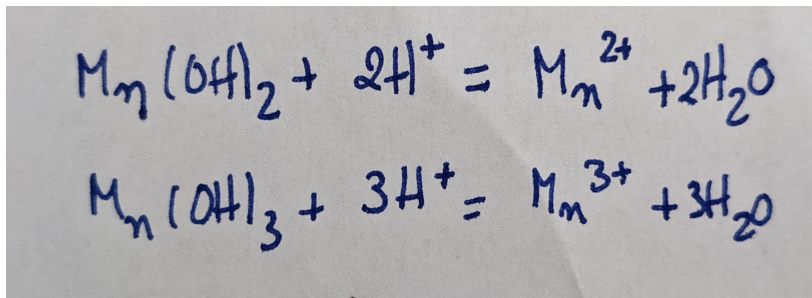 Mn(OH)₂ + 2H⁺ = Mn²⁺ + 2H₂O
Mn(OH)₃ + 3H⁺ = Mn³⁺ + 3H₂O